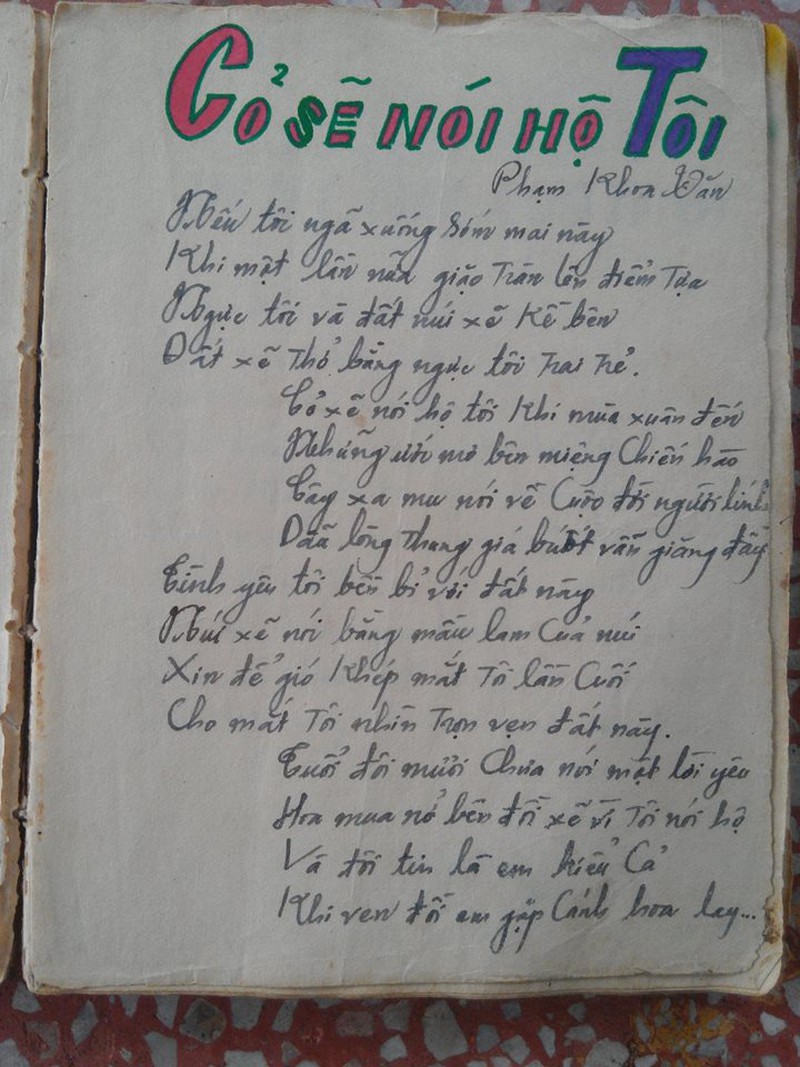 CỎ SẼ NÓI HỘ TÔI
Phạm Khoa Văn
Nếu tôi ngã xuống sớm mai này
Khi một lần nữa giặc Tràn lên điểm Tựa
Ngực tôi và đất núi xẽ Kề bên
Đất xẽ Thở bằng ngực tôi Trai Trẻ.
Cỏ xẽ nói hộ tôi Khi mùa xuân đến
Những ước mơ bên miệng Chiến hào
Cây xa mu nói về Cuộc đời người lính
Dẫu lòng Thung giá buốt vẫn giăng đầy
Tình yêu tôi bền bỉ với đất này
Núi xẽ nói bằng mầu lam Của núi
Xin để gió Khép mắt Tôi lần Cuối
Cho mắt Tôi nhìn Trọn vẹn đất này.
Tuổi đôi mươi Chưa nói một lời yêu
Hoa mua nở bên đồi xẽ vì Tôi nói hộ
Và tôi tin là em hiểu Cả
Khi ven đồi em gặp Cánh hoa lay...